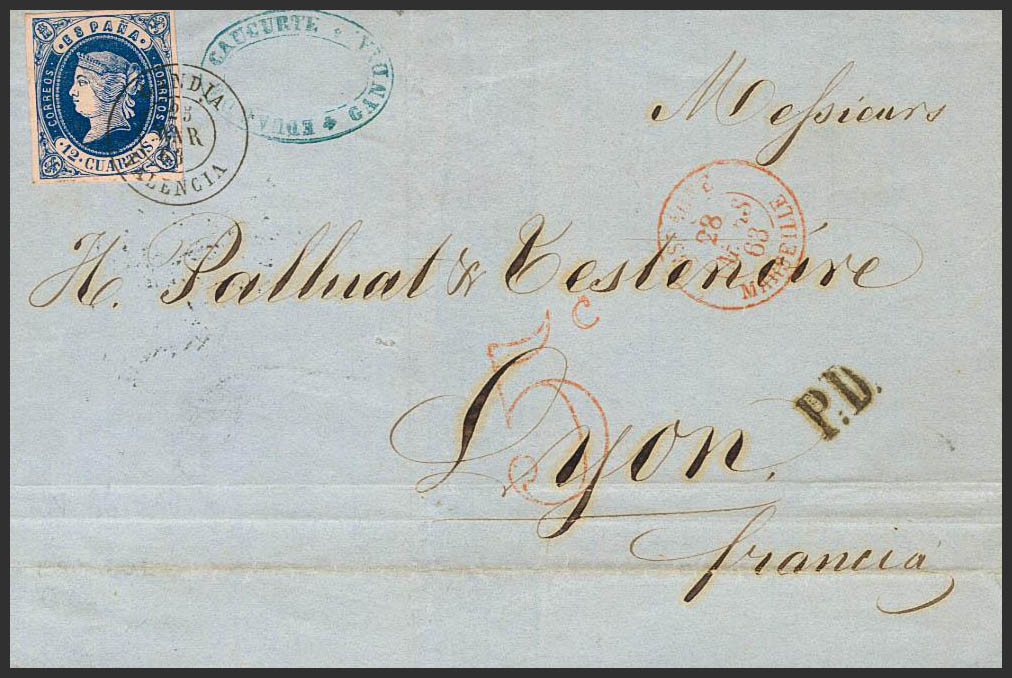 · ESPAÑA ·
CORREOS CORREOS
· 12 · CUARTOS ·
25
MAR
VALENCIA
CAUCURTE
GANDIA
Messieurs
28
MARS
63
MARSEILLE
H. Palluat & Testenoire
5 C
Lyon,
P.D.
francia